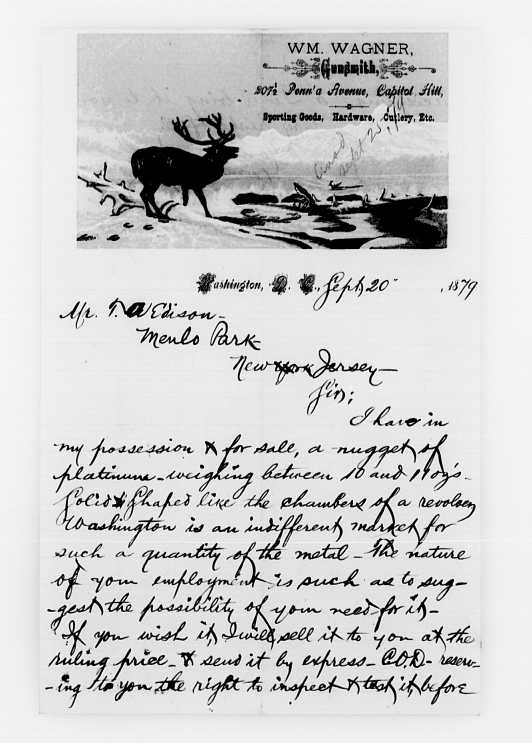 WM. WAGNER,
Gunsmith,
207½ Penn'a Avenue, Capitol Hill,
Sporting Goods, Hardware, Cutlery, Etc.
Ansd
Sept 25/79
Washington, D. C., Sept 20" , 1879
Mr. T. A Edison -
Menlo Park -
New York Jersey -
Sir;
I have in
my possession & for sale, a nugget of
platinum - weighing between 10 and 11 oz's -
Solid & Shaped like the chambers of a revolver
Washington is an indifferent market for
such a quantity of the metal - The nature
of your employment is such as to sug-
-gest the possibility of your need for it -
If you wish it, I will sell it to you at the
ruling price - & send it by express - C.O.D - reserv-
-ing to you the right to inspect & test it, before